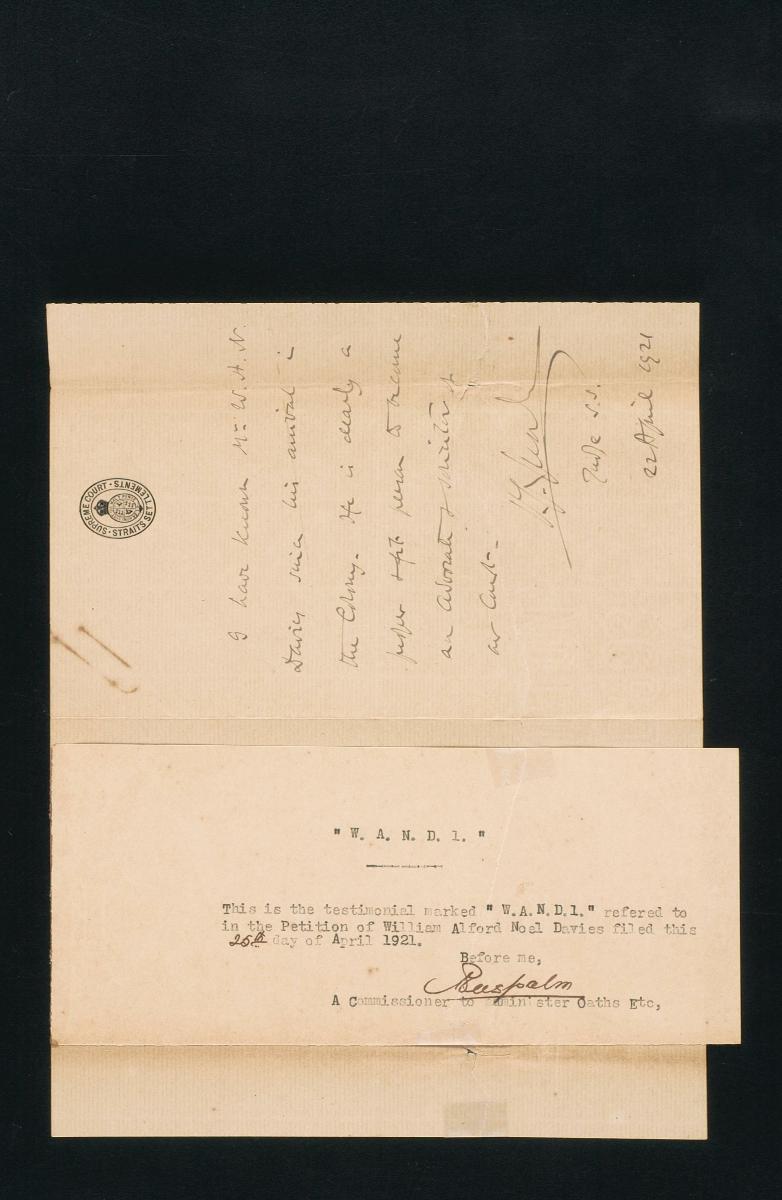 SUPREME COURT · STRAITS SETTLEMENTS ·
I have known Mr W. A. N.
Davies since his arrival in
the Colony. He is clearly a
proper & fit person to become
an Advocate & Solicitor of
our Court.
Judge S.S.
22 April 1921
" W. A. N. D. 1. "
This is the testimonial marked " W.A.N.D.1." refered to
in the Petition of William Alford Noel Davies filed this
25th day of April 1921.
Before me,
A Commissioner to Administer Oaths Etc,